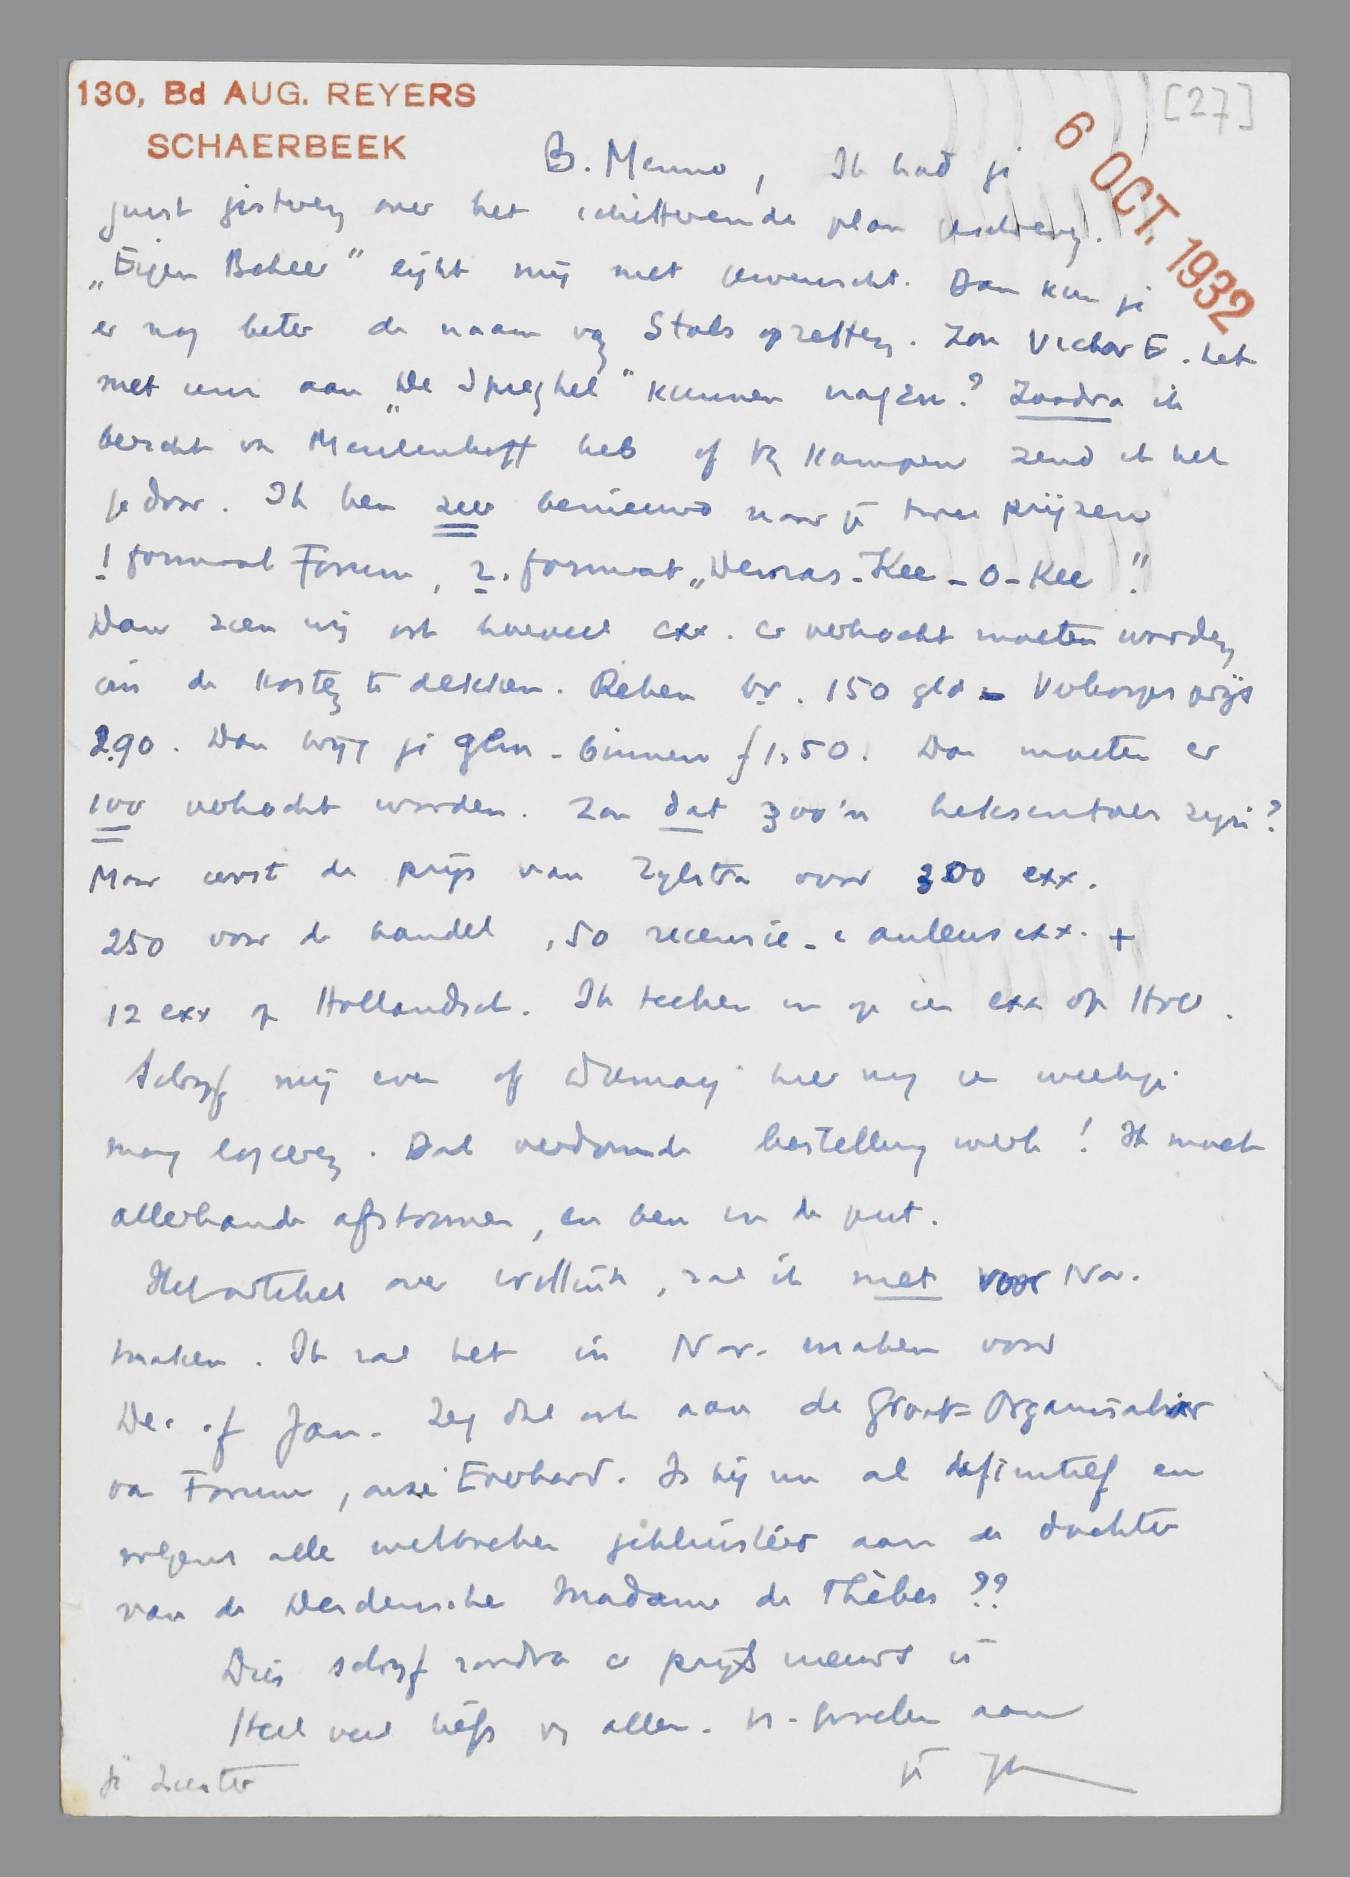 130, Bd AUG. REYERS
SCHAERBEEK
[27]
6 OCT. 1932
B. Menno, Ik had je
juist gisteren over het schitterende plan geschreven.
„Eigen Beheer” lijkt mij niet gewenscht. Dan kun je
er nog beter de naam van Stols opzetten. Zou Victor E. het
niet eens aan „De Spieghel” kunnen vragen? Zoodra ik
bericht van Meulenhoff heb of v Kampen zend ik het
je door. Ik ben zeer benieuwd naar je twee prijzen
1 formaat Forum, 2. formaat „Demas-Kee-o-Kee”!
Dan zien wij ook hoeveel exx. er verkocht moeten worden
om de kosten te dekken. Reken bv. 150 gld = Verkoopsprijs
2.90. Dan krijg je binnen f 1,50! Dan moeten er
100 verkocht worden. Zou dat zoo'n heksentoer zijn?
Maar eerst de prijs van Zijlstra voor 300 exx.
250 voor de handel, 50 recensie- & auteursexx. +
12 exx op Hollandsch. Ik teeken in op een exx op Holl.
Schrijf mij even of hier nog een weekje
mag logeeren. Dat verdomde bestelling werk! Ik moet
allerhande afstormen, en ben in de put.
Het artikel over Willink, zal ik niet voor Nov.
maken. Ik zal het in Nov. maken voor
Dec. of Jan. Zeg dat ook aan de Groot-Organisator
van Forum, onze Everhard. Is hij nu al definitief en
volgens alle wetboeken gekluisterd aan de dochter
van de Leidensche Madame de Thèbes??
Dus schrijf zoodra er prijs nieuws is
Heel veel liefs v allen. v - groeten aan
je zuster
je